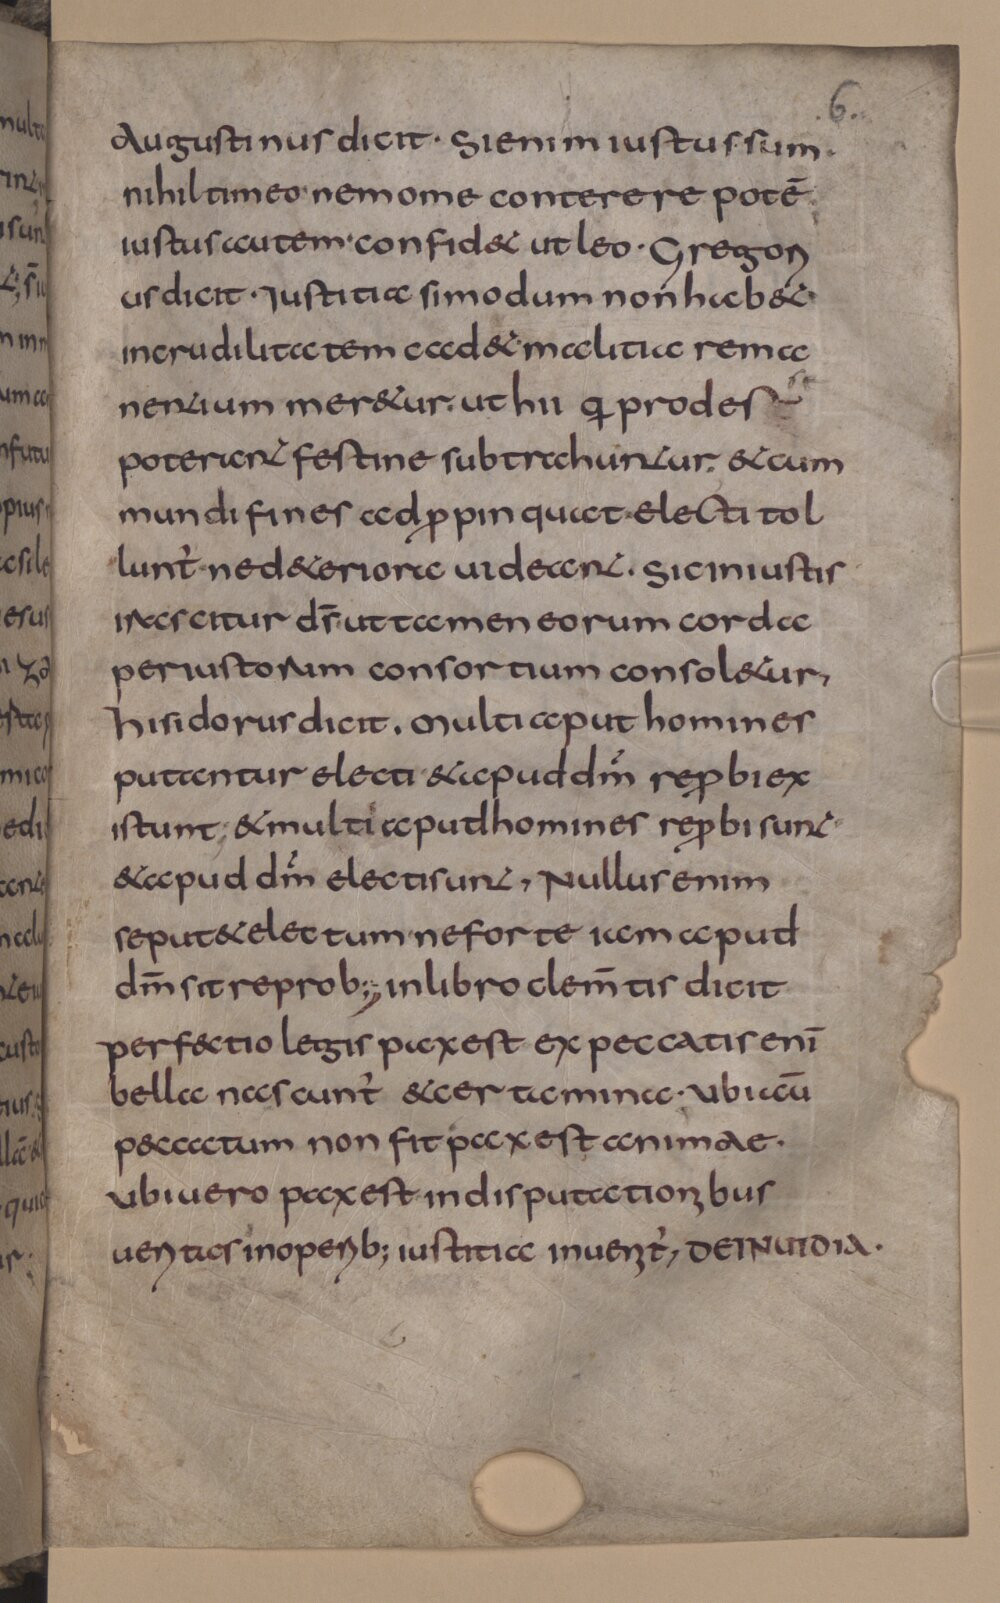 6.
Augustinus dicit · Si enim iustus sum ·
nihil timeo nemo me conterere potē
iustus autem confid& ut leo · Gregori
us dicit · Iustitia si modum non hab&
in crudilitatem cad& malitia rema
nentium mer&ur. ut hii q prodesst
poterant festine subtrahuntur. & cum
mundi fines adppinquat electi tol
lunt᾽ ne d&eriora uideant. Sic iniustis
irascitur ds̄ ut tamen eorum corda
per iustorum consortium consol&ur,
hisidorus dicit. Multi aput homines
putantur electi & apud dm̄ repbi ex
istunt, & multi apud homines repbi sunt
& apud dm̄ electi sunt, Nullus enim
se put& electum ne forte iam apud
dm̄ sit reprob; in libro clem̄tis dicit
perfectio legis pax est ex peccatis enī
bella nascunt᾽ & certamina · Ubi aū
p&catum non fit pax est animae ·
Ubi uero pax est in disputationibus
ueritas in operib; iustitia inuenit᾽, DE INUIDIA ·